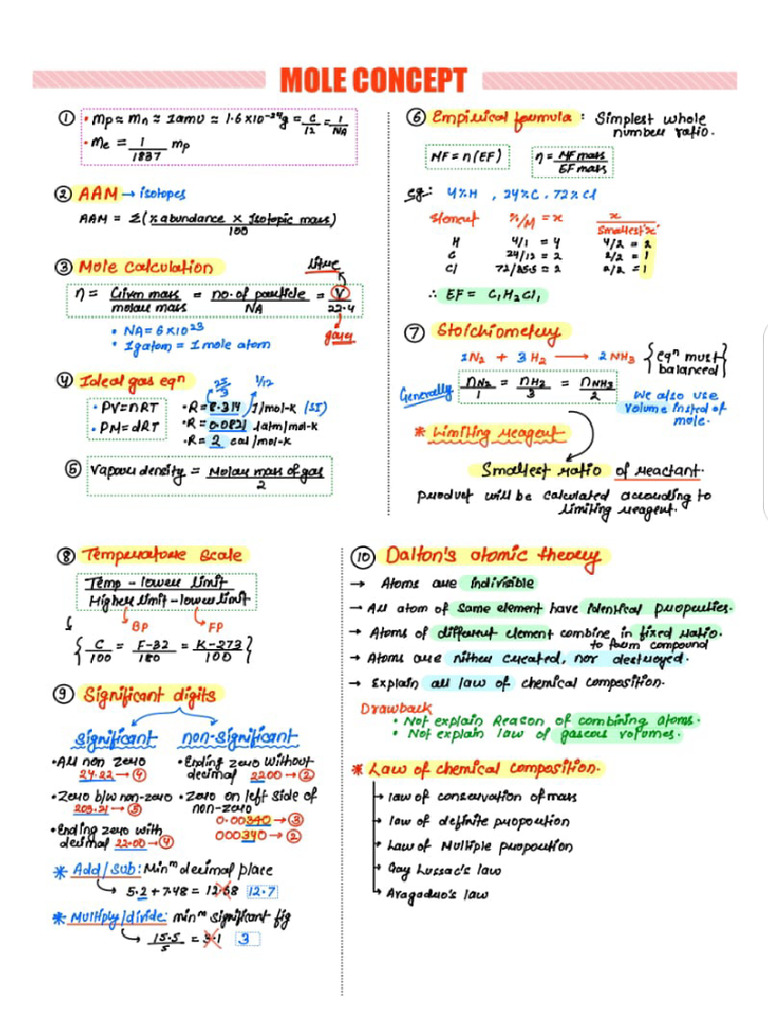 MOLE CONCEPT
① • mp ≈ mn ≈ 1amu ≈ 1.6×10⁻²⁴g = C/12 = 1/NA
• me = 1/1837 mp
② AAM → isotopes
AAM = Σ(% abundance × Isotopic mass)/100
③ Mole calculation
litre
n = Given mass/molar mass = no. of particle/NA = V/22.4
gases
• NA = 6×10²³
• 1gatom = 1 mole atom
④ Ideal gas eqn
25/3 1/12
• PV=nRT • R = 8.314 J/mol-K (SI)
• PM=dRT • R = 0.0821 latm/mol-K
• R = 2 cal/mol-K
⑤ Vapour density = Molar mass of gas/2
⑥ Empirical formula : Simplest whole
number ratio.
MF = n(EF) n = MF mass/EF mass
eg:- 4%H , 24%C , 72%Cl
Element %/M = x x/Smallest 'x'
H 4/1 = 4 4/2 = 2
C 24/12 = 2 2/2 = 1
Cl 72/35.5 = 2 2/2 = 1
∴ EF = C₁H₂Cl₁
⑦ Stoichiometry
1N₂ + 3H₂ → 2NH₃ { eqn must
balanced
Generally nN₂/1 = nH₂/3 = nNH₃/2 We also use
volume insted of
mole.
* Limiting reagent
Smallest ratio of reactant.
product will be calculated according to
limiting reagent.
⑧ Temperature scale
Temp – lower limit/Higher limit – lower limit
↳ BP ↳ FP
{ C/100 = F-32/180 = K-273/100 }
⑨ Significant digits
Significant non-significant
• All non zero
24.22 → ④
• Ending zero without
decimal 2200 → ②
• Zero b/w non-zero
203.21 → ⑤
• Zero on left side of
non-zero
0.00340 → ③
000340 → ②
• Ending zero with
decimal 22.00 → ④
* Add/sub: Minm decimal place
↳ 5.2 + 7.48 = 12.68 12.7
* Multiply/divide: minm significant fig
↳ 15.5/5 = 3.1 3
⑩ Dalton's atomic theory
→ Atoms are indivisible
→ All atom of same element have identical properties.
→ Atoms of different element combine in fixed ratio.
to form compound
→ Atoms are nither created, nor destroyed.
→ Explain all law of chemical composition.
Drawback
• Not explain Reason of combining atoms.
• Not explain law of gaseous volumes.
* Law of chemical composition.
→ law of conservation of mass
→ law of definite proportion
→ Law of Multiple proportion
→ Gay Lussac's law
→ Avagadro's law